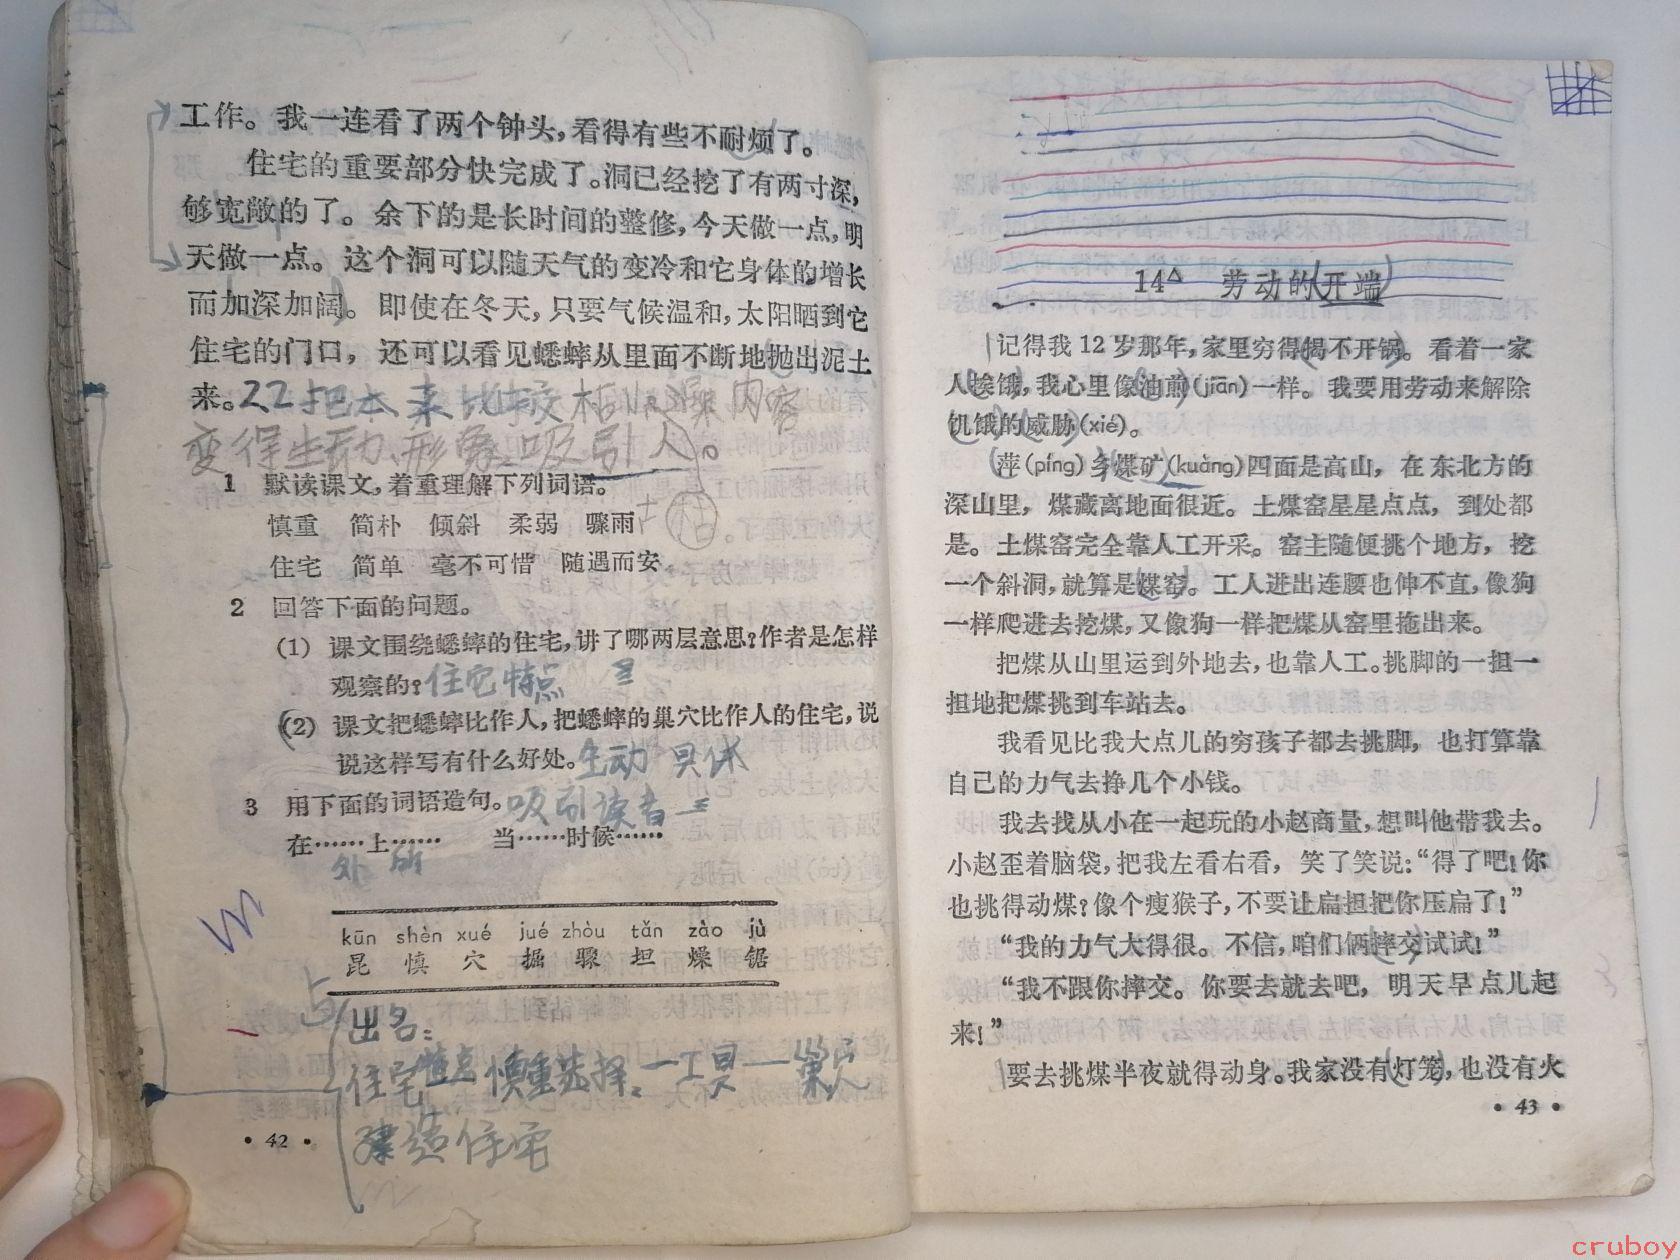 工作。我一连看了两个钟头，看得有些不耐烦了。
住宅的重要部分快完成了。洞已经挖了有两寸深，
够宽敞的了。余下的是长时间的整修，今天做一点，明
天做一点。这个洞可以随天气的变冷和它身体的增长
而加深加阔。即使在冬天，只要气候温和，太阳晒到它
住宅的门口，还可以看见蟋蟀从里面不断地抛出泥土
来。把本来比较枯燥内容
变得生动、形象、吸引人。
1 默读课文，着重理解下列词语。
慎重 简朴 倾斜 柔弱 骤雨
枯
住宅 简单 毫不可惜 随遇而安
2 回答下面的问题。
(1) 课文围绕蟋蟀的住宅，讲了哪两层意思？作者是怎样
观察的？住宅特点
(2) 课文把蟋蟀比作人，把蟋蟀的巢穴比作人的住宅，说
说这样写有什么好处。生动 具体
3 用下面的词语造句。吸引读者
在……上…… 当……时候……
外 所
kūn shèn xué jué zhòu tǎn zào jù
昆 慎 穴 掘 骤 坦 燥 锯
出名：
住宅特点 慎重选择 工具 巢穴
建造住宅
• 42 •
14△ 劳动的开端
记得我12岁那年，家里穷得揭不开锅。看着一家
人挨饿，我心里像油煎(jiān)一样。我要用劳动来解除
饥饿的威胁(xié)。
萍(píng)乡煤矿(kuàng)四面是高山，在东北方的
深山里，煤藏离地面很近。土煤窑星星点点，到处都
是。土煤窑完全靠人工开采。窑主随便挑个地方，挖
一个斜洞，就算是煤窑。工人进出连腰也伸不直，像狗
一样爬进去挖煤，又像狗一样把煤从窑里拖出来。
把煤从山里运到外地去，也靠人工。挑脚的一担一
担地把煤挑到车站去。
我看见比我大点儿的穷孩子都去挑脚，也打算靠
自己的力气去挣几个小钱。
我去找从小在一起玩的小赵商量，想叫他带我去。
小赵歪着脑袋，把我左看右看，笑了笑说：“得了吧！你
也挑得动煤？像个瘦猴子，不要让扁担把你压扁了！”
“我的力气大得很。不信，咱们俩摔交试试！”
“我不跟你摔交。你要去就去吧，明天早点儿起
来！”
要去挑煤半夜就得动身。我家没有灯笼，也没有火
• 43 •
cruboy